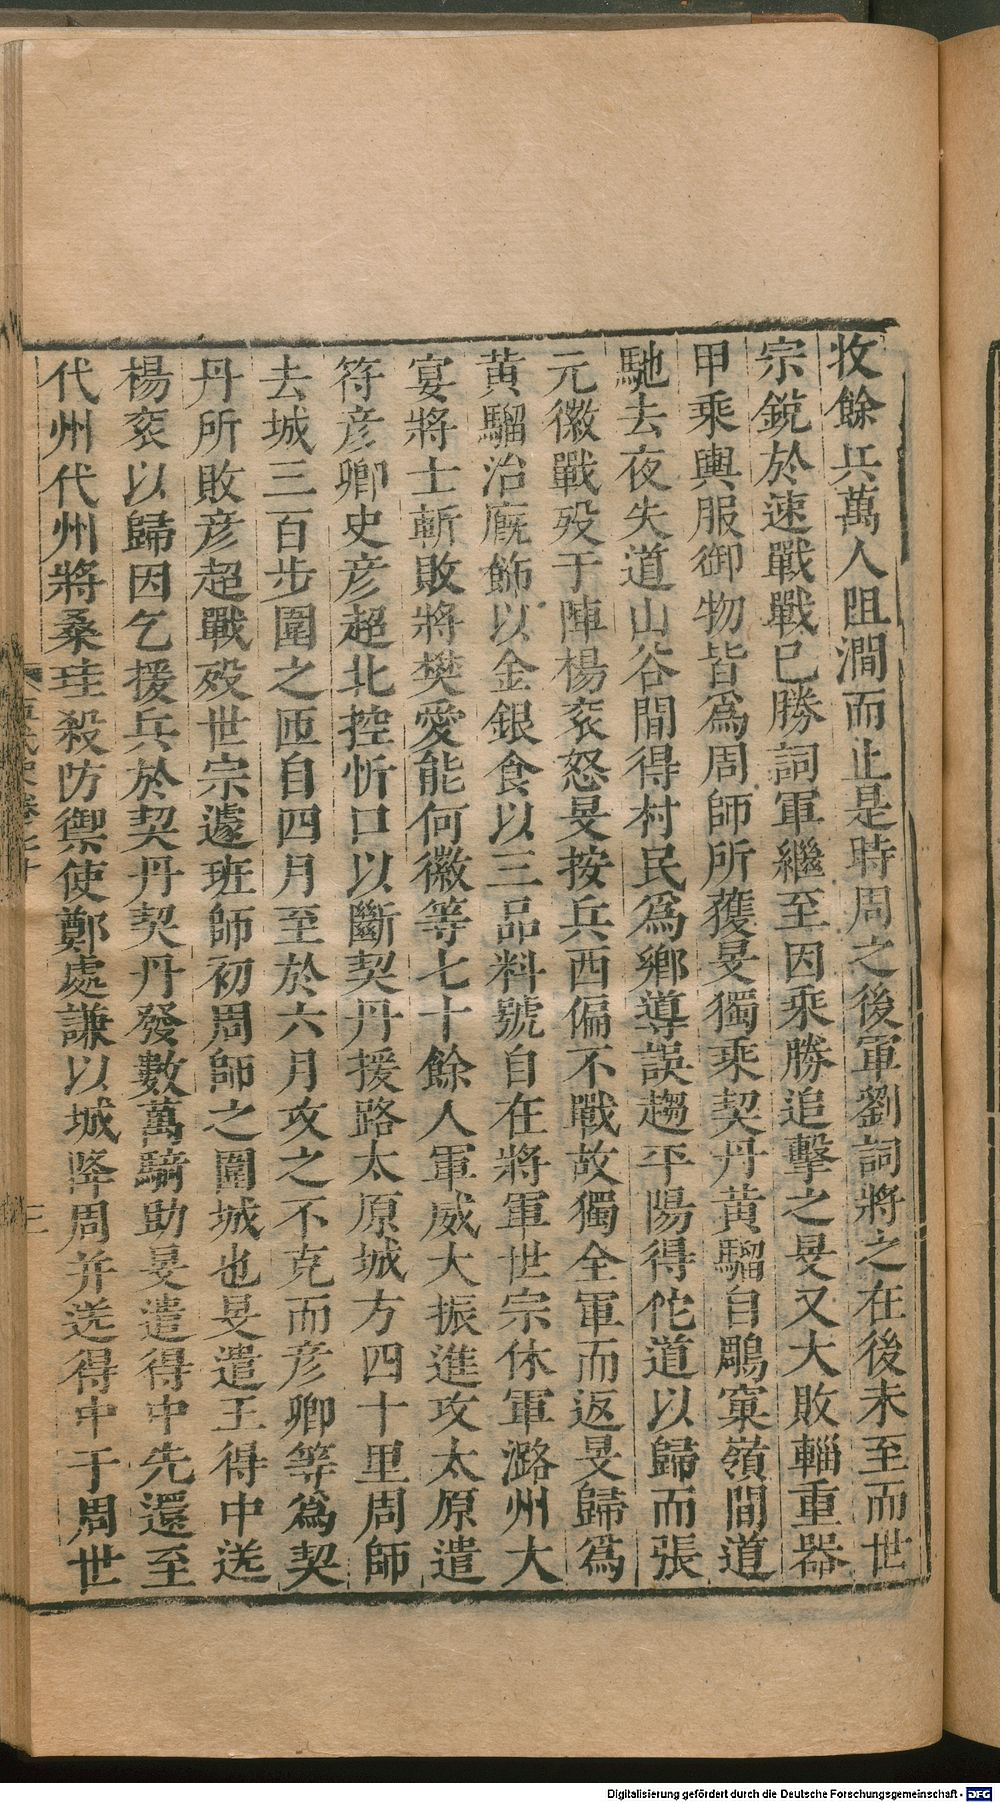 收餘兵萬人阻澗而止是時周之後軍劉詞將之在後未至而世
宗銳於速戰戰已勝詞軍繼至因乘勝追擊之旻又大敗輜重器
甲乘輿服御物皆爲周師所獲旻獨乘契丹黃騮自鵰窠嶺間道
馳去夜失道山谷間得村民爲鄉導誤趨平陽得佗道以歸而張
元徽戰歿于陣楊衮怒旻按兵西偏不戰故獨全軍而返旻歸爲
黃騮治廐飾以金銀食以三品料號自在將軍世宗休軍潞州大
宴將士斬敗將樊愛能何徽等七十餘人軍威大振進攻太原遣
符彦卿史彦超北控忻口以斷契丹援路太原城方四十里周師
去城三百步圍之匝自四月至於六月攻之不克而彦卿等爲契
丹所敗彦超戰歿世宗遽班師初周師之圍城也旻遣王得中送
楊衮以歸因乞援兵於契丹契丹發數萬騎助旻遣得中先還至
代州代州將桑珪殺防禦使鄭處謙以城降周并送得中于周世
五代史卷七十
三
Digitalisierung gefördert durch die Deutsche Forschungsgemeinschaft - DFG